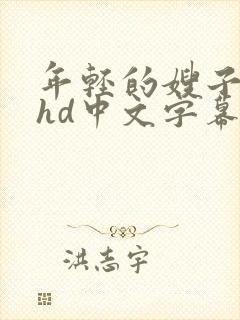 年轻的嫂子
hd中文字幕
洪志宇